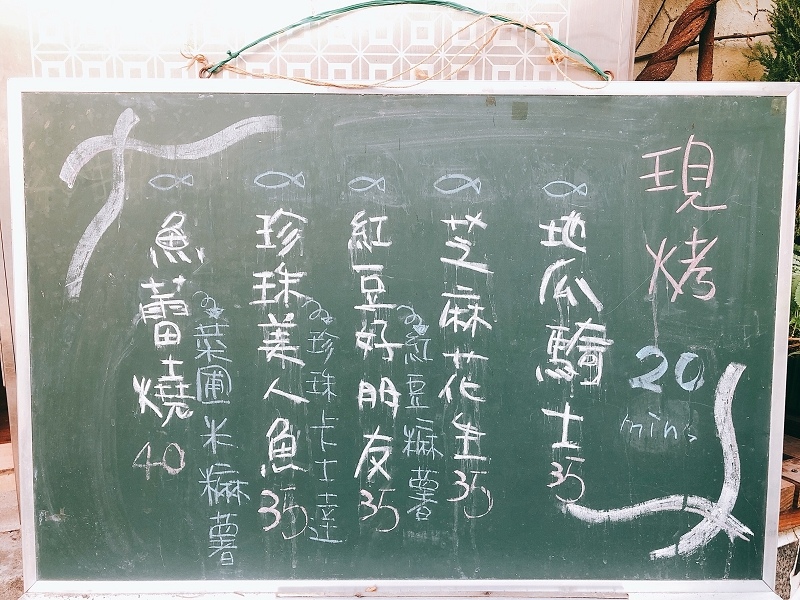 現烤
20
mins
地瓜騎士35
芝麻花生35
紅豆好朋友35
紅豆麻薯
珍珠美人魚35
珍珠卡士達
魚蕾燒40
菜圃米麻薯